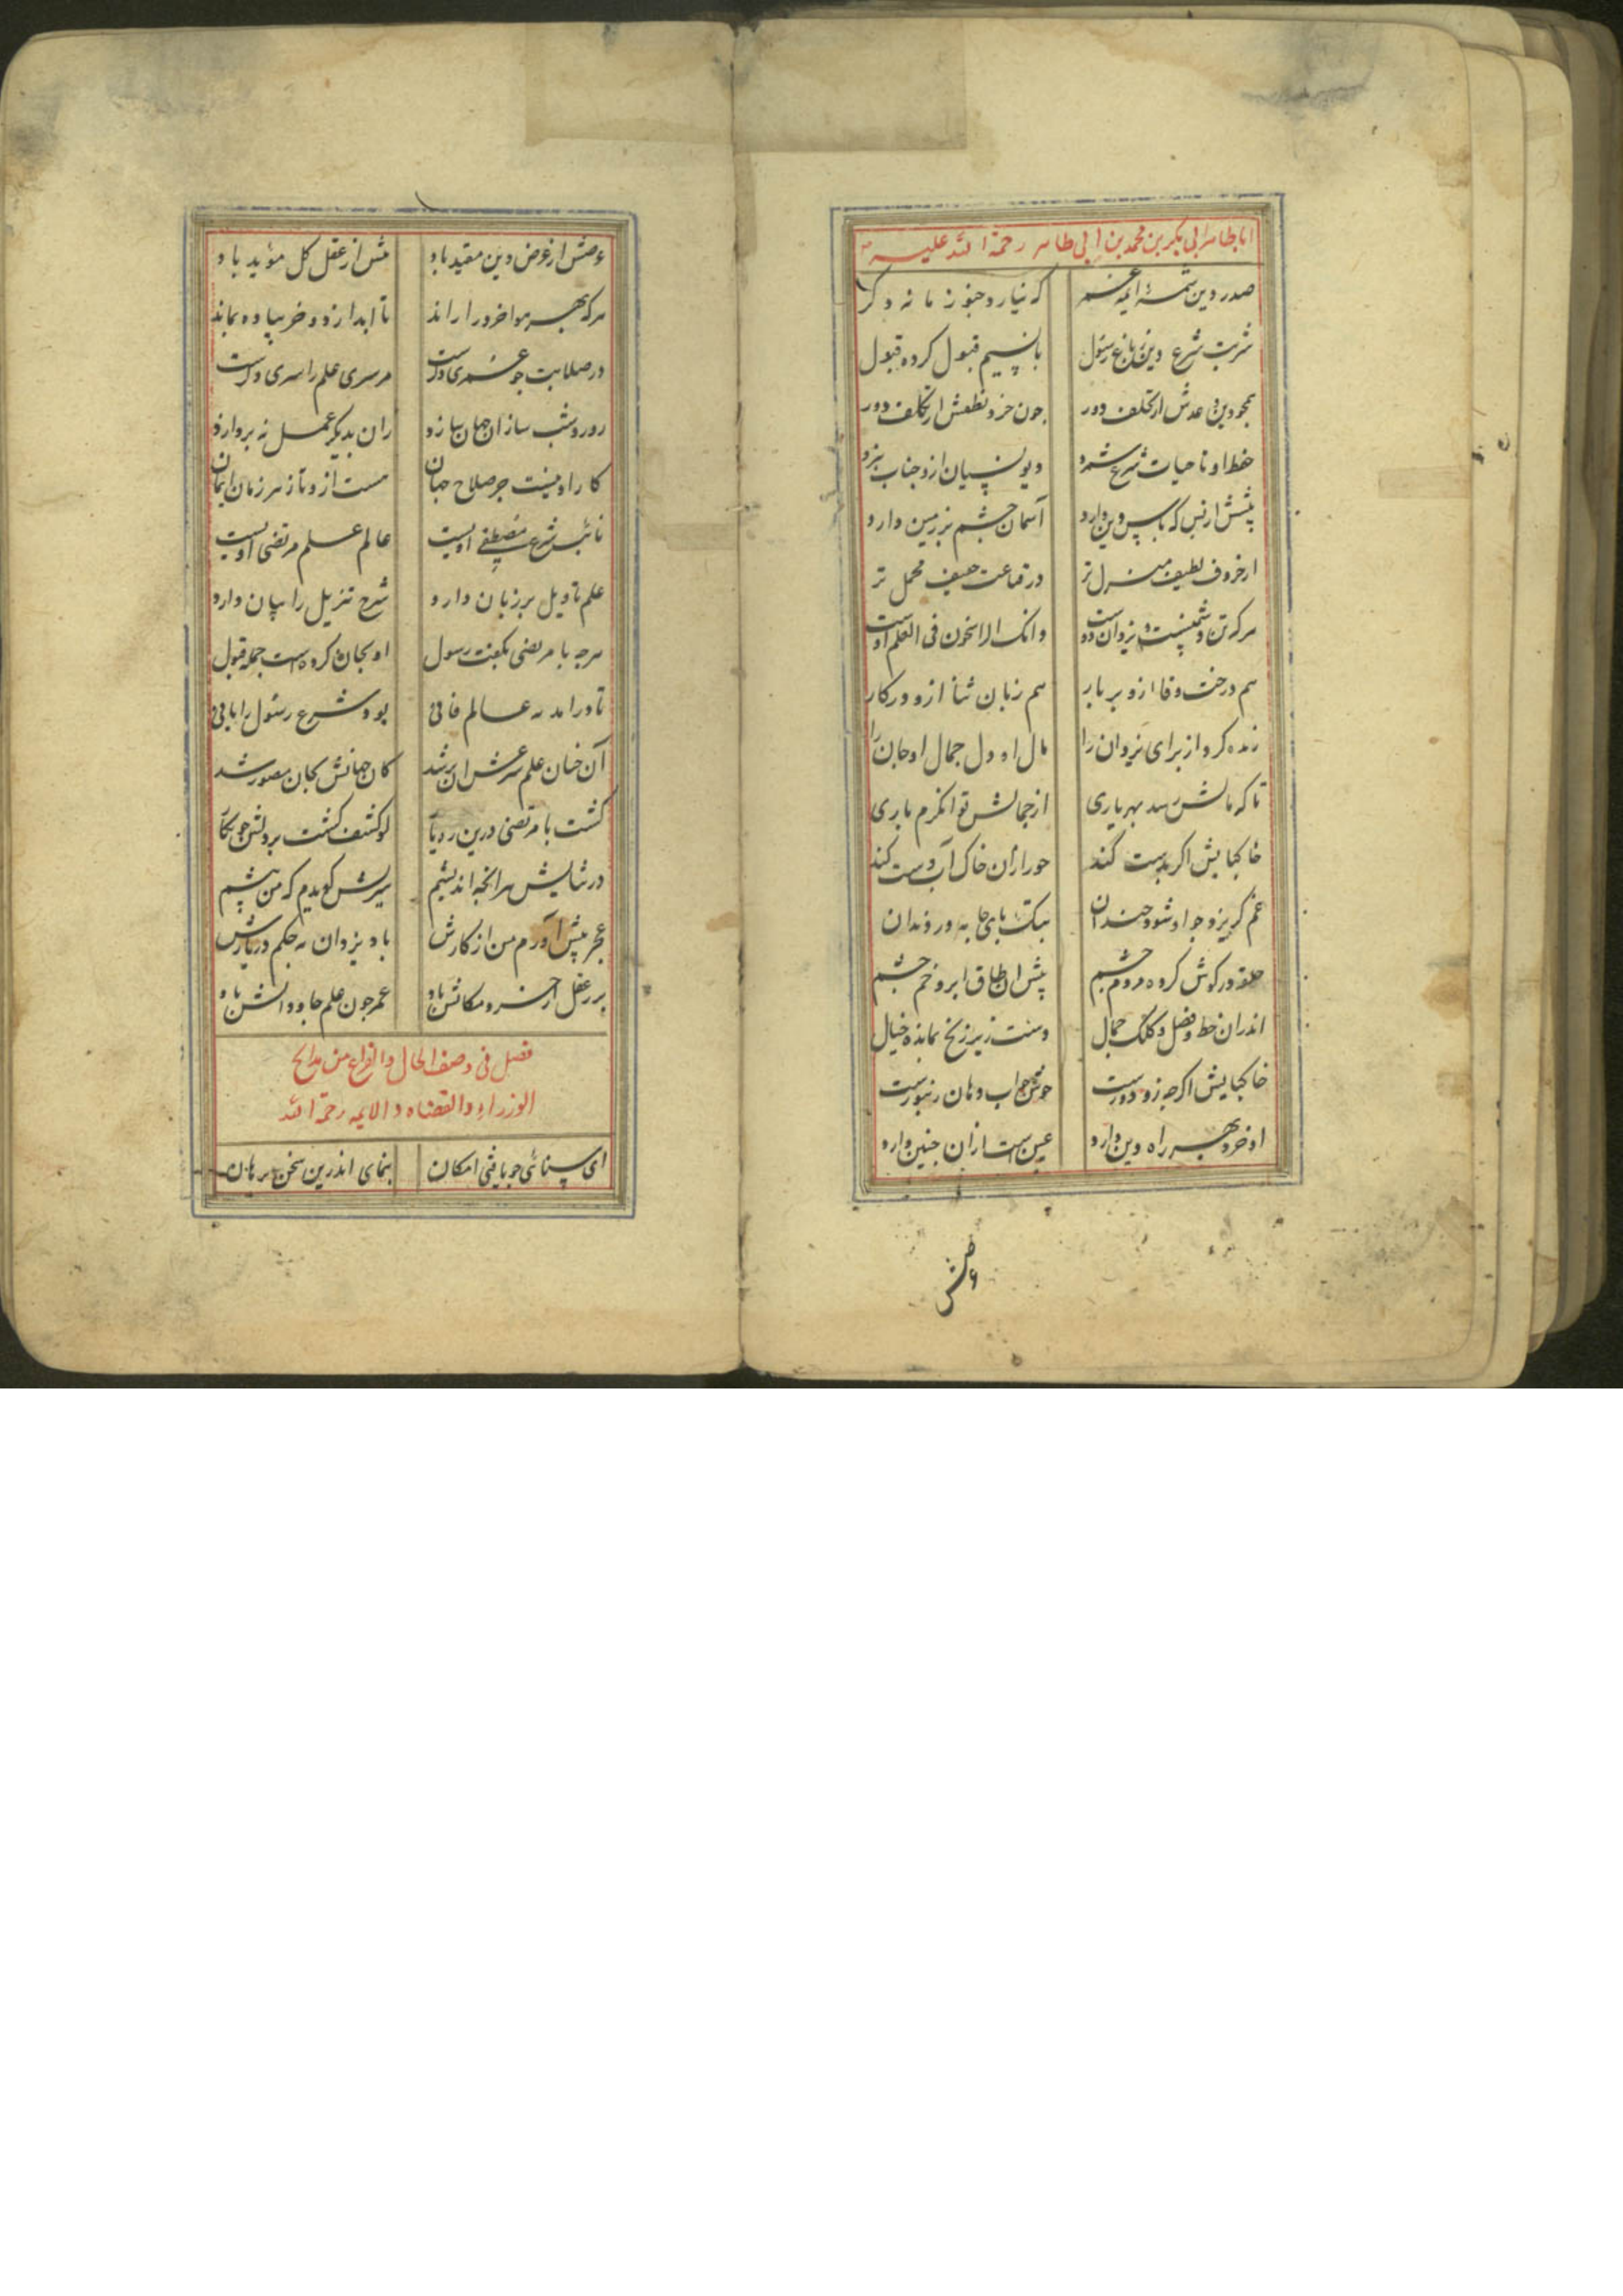 ابا طاهر ابی بکر بن محمد بن ابی طاهر رحمة الله علیه
صدر دین شمسهٔ ائمه عمر که نیارد چنو زمانه دکر
شربت شرع دین باغ رسول با نسیم قبول کرده قبول
همچو دین وعدش از تکلف دور چون خرد نطقش از تکلف دور
حفظ او تا حیات شرع شمرد دیو نسیان ازو جناب ببرد
پیشش از بس که پاس دین دارد آسمان چشم بر زمین دارد
از حروف لطیف منزل تر در قناعت حنیف محمل تر
هرکه تن دشمنست و یزدان دوست وانک الراسخون فی العلم اوست
هم درخت وفا ازو بر بار هم زبان ثنا ازو در کار
زنده کرد از برای یزدان را مال او دل جمال او جان را
تا که مالش رسد بهر یاری از جمالش توانکرم باری
خاکپایش اکر بدست کند حور ازان خاک آب دست کند
غم کریزد چو او شود خندان بیک پای جا به در و ندان
حلقه در کوش کرده مردم چشم پیش آن طاق ابرو خم چشم
اندران خط و فضل و کلک جمال دست زیر زنخ بمانده خیال
خاکپایش اکرچه زو دورست خوش چو آب دهان زنبورست
او خرد بهر راه دین دارد عین است ازان چنین دارد
عرضش
عرضش از عرض دین مقید باد نفس از عقل کل مؤید باد
هرکه بهر هوا خرد را راند تا ابد ازو خر پیاده بماند
در صلابت چو عمری دکرست هر سری علم را سری دکرست
روز و شب ساز آن جهان سازد زان بدیکر عمل نه پردازد
کار او نیست جز صلاح جهان هست ازو تازه سر زمان ایمان
نائب شرع مصطفی اویست عالم علم مرتضی اویست
علم تاویل بر زبان دارد شرح تنزیل را بیان دارد
هرچه با مرتضی بکفت رسول او بجان کرده است جمله قبول
تا در آمد به عالم فانی بود شرع رسول را بانی
آن چنان علم شرعش ازبر شد کان جهانش بجان مصور شد
کشت با مرتضی درین ره یکتا لو کشف کشت بر دلش چو یکتا
در ثنایش هر آنچه اندیشم سیرتش کویدم که من پیشم
عجز پیش آورم من از کارش باد یزدان به حکم در یارش
برتر از عقل و خرد مکانش باد عمر چون علم جاودانش باد
فصل فی وصف الحال و الفراغ من مدائح
الوزراء و القضاه و الائمه رحمة الله
ای سنائی چو یافتی امکان بنمای اندرین سخن برهان